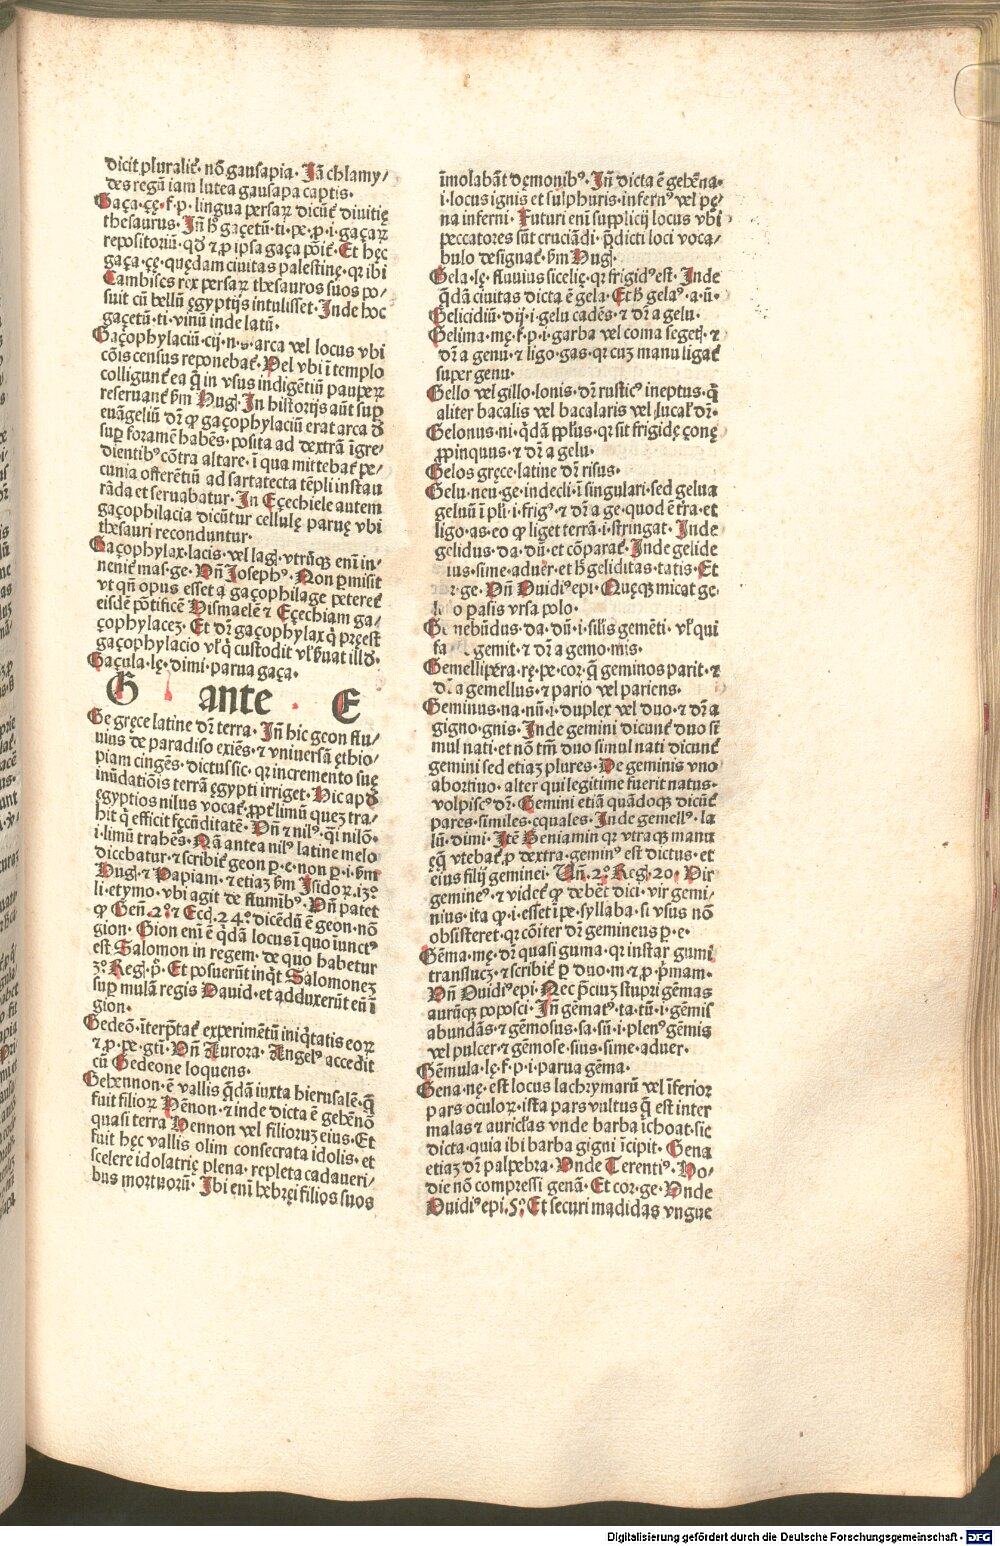 dicit pluralit̃· nõ gausapia· Jã chlamy/
des regũ iam lutea gausapa captis·
Gaça·çę·f·p·lingua persaꝝ dicũt̃ diuitię
thesaurus· Jñ h̃ gaçetũ·ti·pe·ꝓ·i·gaçaꝝ
repositoriũ· qđ ⁊ ꝓ ipsa gaça põit̃· Et hęc
gaça·çę·quędam ciuitas palestinę·qꝛ ibi
Cambises rex persaꝝ thesauros suos po/
suit cũ bellũ ęgyptijs intulisset· Jnde hoc
gaçetũ·ti·vinũ inde latũ·
Gaçophylaciũ·cij·n·s·arca vel locus vbi
cõis census reponebat̃· Vel vbi ĩ templo
colligunt̃ ea q̃ in vsus indigẽtiũ pauperꝝ
reseruant̃ ẜm Hugͥ· Jn historijs aũt sup̃
euãgeliũ dꝛ̃ ꝙ gaçophylaciũ erat arca đ
sup̃ foramẽ habẽs·posita ad dextrã ĩgre/
dientibꝰ cõtra altare·ĩ qua mittebat̃ pe/
cunia offerẽtiũ ad sartatecta tẽpli instau
rãda et seruabatur· Jn Eçechiele autem
gaçophilacia dicũtur cellulę paruę vbi
thesauri reconduntur·
Gaçophylax·lacis·vel lagͥ·vtrũqꝫ enĩ in/
nenit̃ mas·ge· Vñ Josephꝰ· Non p̱misit
vt qñ opus esset a gaçophilage peteret̃
eisdẽ põtificẽ Hismaelẽ ⁊ Eçechiam ga/
çophylaceʒ· Et dꝛ̃ gaçophylax q̃ pręest
gaçophylacio vl̃ q̃ custodit vl̃ ẜuat illđ·
Gaçula·lę·dimi·parua gaça·
G ante E
Ge gręce latine dꝛ̃ terra· Jñ hic geon flu/
uius de paradiso exiẽs·⁊ vniuersã ęthio/
piam cingẽs·dictus sic·qꝛ incremento suę
inũdatiõis terrã ęgypti irriget· Hic apđ
ęgyptios nilus vocat̃·ꝓpt̃ limũ queʒ tra/
hit q̃ efficit fęcũditatẽ· Vñ ⁊ nilꝰ·q̃i nilõ·
i·limũ trahẽs· Nã antea nilꝰ latine melo
dicebatur·⁊ scribit̃ geon p·e·non p·i·ẜm
Hugͥ·⁊ Papiam·⁊ etiaʒ ẜm Jsidoꝝ·13º
li·etymo·vbi agit de flumibꝰ· Vñ patet
ꝙ Geñ·2º·⁊ Eccͥ·24º·dicẽdũ ẽ geon·nõ
gion· Gion enĩ ẽ q̃dã locus ĩ quo iunctꝰ
est Salomon in regem·de quo habetur
3º Regͥ·p̃· Et posuerũt inq̃t Salomoneʒ
sup̃ mulã regis Dauid·et adduxerũt eũ ĩ
gion·
Gedeõ·ĩterp̃tat̃ experimẽtũ iniq̃tatis eoꝝ
⁊ ꝓ·pe·gti· Vñ Aurora· Angelꝰ accedit
cũ Gedeone loquens·
Gehennon·ẽ vallis q̃dã iuxta hierusalẽ·q̃
fuit filioꝝ Hẽnon·⁊ inde dicta ẽ gehẽnõ
quasi terra Hennon vel filioruʒ eius· Et
fuit hęc vallis olim consecrata idolis·et
scelere idolatrię plena·repleta cadaueri/
bus mortuorũ· Jbi enĩ hebręi filios suos
ĩmolabãt dęmonibꝰ· Jñ dicta ẽ gehẽna·
i·locus ignis et sulphuris·infernꝰ vel pę/
na inferni· Futuri enĩ supplicij locus vbi
peccatores sũt cruciãdi·p̃dicti loci voca/
bulo designat̃·ẜm Hugͥ·
Gela·lę·fluuius sicelię·qꝛ frigidꝰ est· Jnde
q̃dã ciuitas dicta ẽ gela· Et h̃ gelaꝰ·a·ũ·
Gelicidiũ·dij·i·gelu cadẽs·⁊ dꝛ̃ a gelu·
Gelima·mę·f·p·i·garba vel coma segetͥ·⁊
dꝛ̃ a genu·⁊ ligo·gas·qꝛ cuʒ manu ligat̃
super genu·
Gello vel gillo·lonis·dꝛ̃ rusticꝰ ineptus·q̃
aliter bacalis vel bacalaris vel lucal̃ dꝛ̃·
Gelonus·ni·q̃dã ppl̃us·qꝛ sit frigidę çonę
ꝓpinquus·⁊ dꝛ̃ a gelu·
Gelos gręce·latine dꝛ̃ risus·
Gelu·neu·ge·indecli·ĩ singulari·sed gelua
geluũ ĩ pl̃i·i·frigꝰ·⁊ dꝛ̃ a ge·quod ẽ tra·et
ligo·as·eo ꝙ liget terrã·i·stringat· Jnde
gelidus·da·dũ·et cõparat̃· Jnde gelide
ius·sime·aduer·et h̃ geliditas·tatis· Et
ge· Vñ Ouidiꝰ epi· Quęqꝫ micat ge·
o pasis vrsa polo·
Gemebũdus·da·dũ·i·silis gemẽti·vl̃ qui
gemit·⁊ dꝛ̃ a gemo·mis·
Gemellipera·rę·pe·cor·q̃ geminos parit·⁊
dꝛ̃ a gemellus·⁊ pario vel pariens·
Geminus·na·nũ·i·duplex vel duo·⁊ dꝛ̃ a
gigno·gnis· Jnde gemini dicunt̃ duo sĩ
mul nati·et nõ tm̃ duo simul nati dicunt̃
gemini sed etiaʒ plures· De geminis vno
abortiuo·alter qui legitime fuerit natus·
volpiscꝰ dꝛ̃· Gemini etiã quãdoqꝫ dicũt̃
pares·similes·equales· Jnde gemellꝰ·la
lũ·dimi· Jtẽ Beniamin qꝛ vtraqꝫ manu
ęq̃ vtebat̃ ꝓ dextra·geminꝰ est dictus·et
eius filij geminei· Vñ·2º·Regͥ·20· Vir
gemineꝰ·⁊ videt̃ ꝙ debẽt dici·vir gemi/
nius·ita ꝙ·i·esset ĩ pe·syllaba·si vsus nõ
obsisteret·qꝛ cõiter dꝛ̃ gemineus p·e·
Gẽma·mę·dꝛ̃ quasi guma·qꝛ instar gumi
translucʒ·⁊ scribit̃ p̱ duo·m·⁊ ꝓ·p̃mam·
Vñ Ouidiꝰ epi· Nec p̃ciuʒ stupri gẽmas
aurũqꝫ poposci· Jñ gẽmatꝰ·ta·tũ·i·gẽmis̃
abundãs·⁊ gẽmosus·sa·sũ·i·plenꝰ gẽmis
vel pulcer·⁊ gẽmose·sius·sime·aduer·
Gẽmula·lę·f·p·i·parua gẽma·
Gena·nę·est locus lachrymarũ vel ĩferior
pars oculoꝝ·ista pars vultus q̃ est inter
malas ⁊ auriclas vnde barba ĩchoat·sic
dicta·quia ibi barba gigni ĩcipit· Gena
etiaʒ dꝛ̃ palpebra· Vnde Terentiꝰ· Ho/
die nõ compressi genã· Et cor·ge· Vnde
Ouidiꝰ epi·5º· Et securi madidas vngue
Digitalisierung gefördert durch die Deutsche Forschungsgemeinschaft - DFG